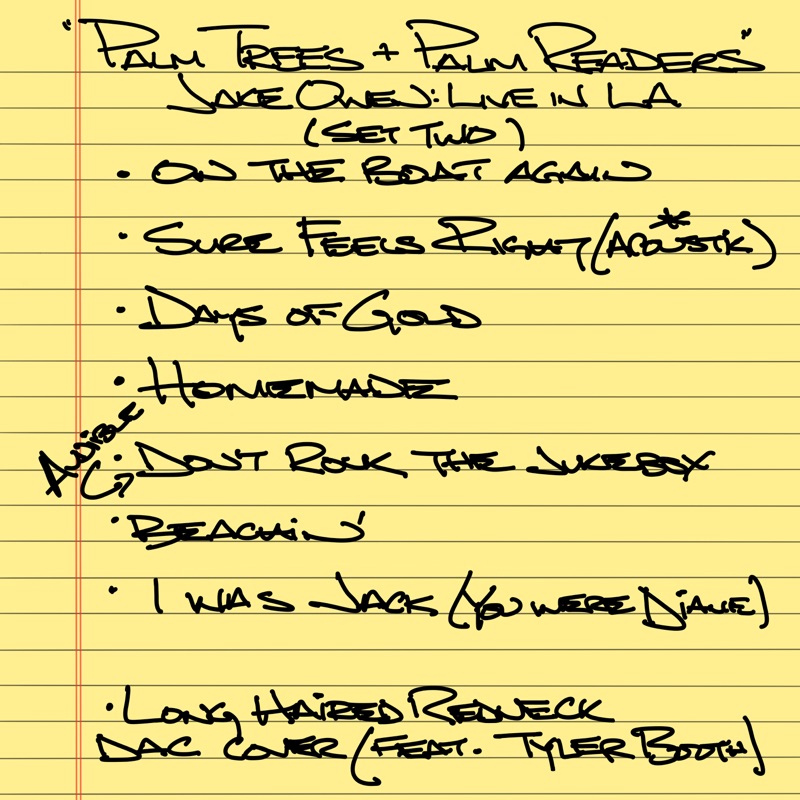 "PALM TREES + PALM READERS"
JAKE OWEN: LIVE IN LA
(SET TWO)
• ON THE BOAT AGAIN
• SURE FEELS RIGHT (ACOUSTIK) *
• DAYS OF GOLD
• HOMEMADE
AUDIBLE
• DON'T ROCK THE JUKEBOX
• BEACHIN'
• I WAS JACK (YOU WERE DIANE)
• LONG HAIRED REDNECK
DAC COVER (FEAT. TYLER BOOTH)